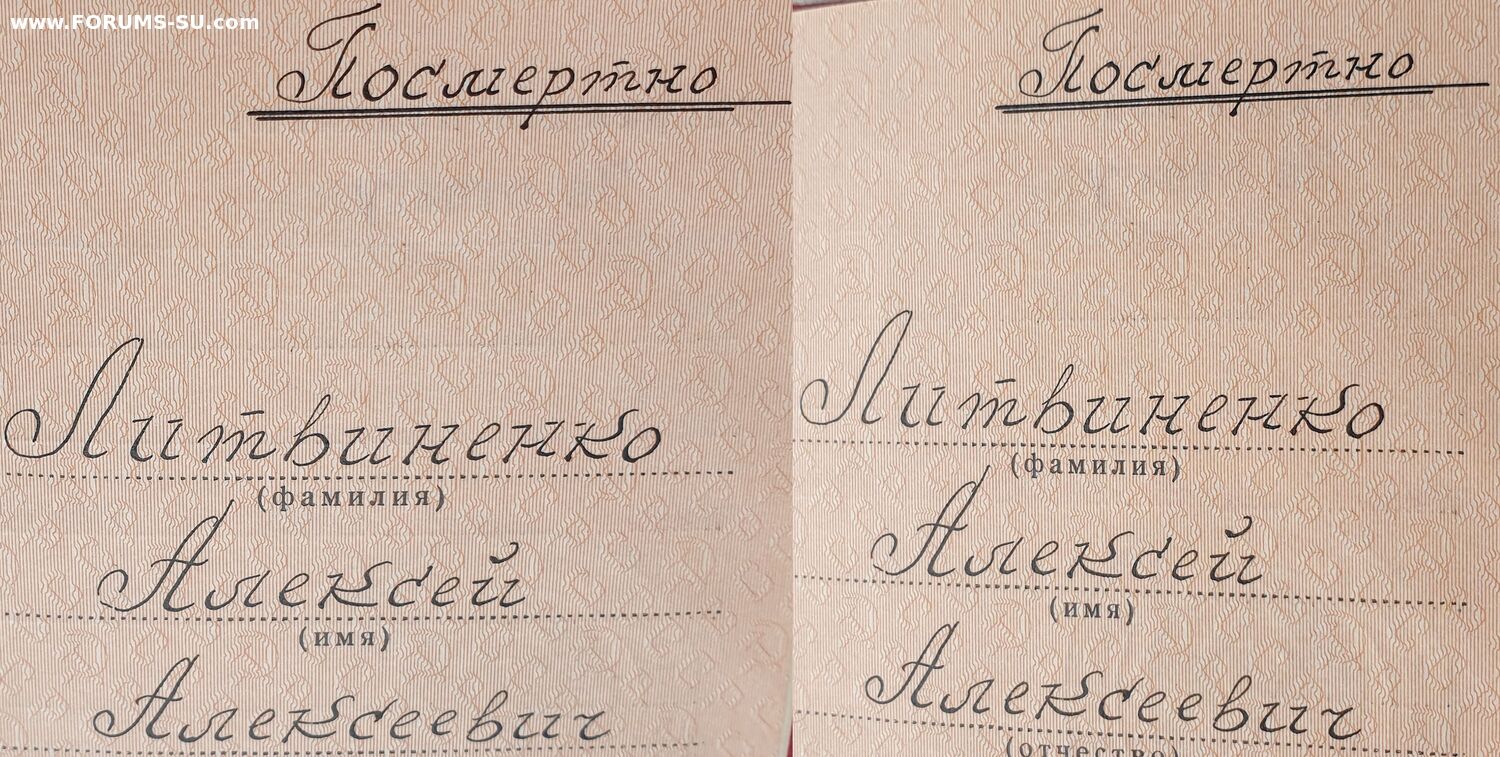 www.FORUMS-SU.com
Посмертно
Литвиненко
(фамилия)
Алексей
(имя)
Алексеевич
Посмертно
Литвиненко
(фамилия)
Алексей
(имя)
Алексеевич
(отчество)